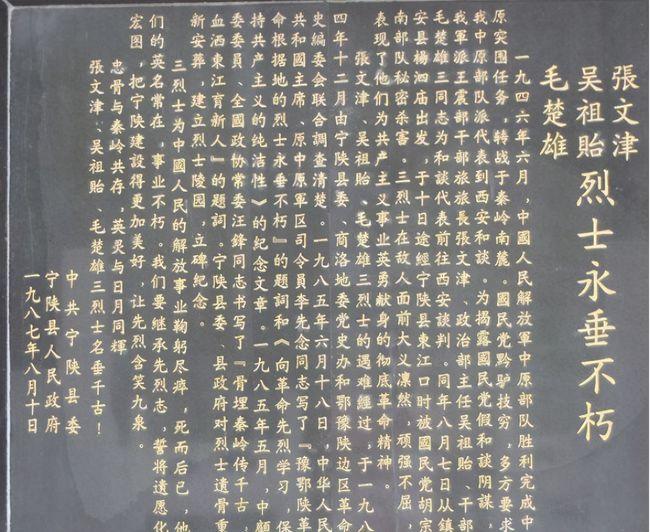 張文津
吴祖貽烈士永垂不朽
毛楚雄
一九四六年六月，中國人民解放軍中原部队胜利完成中
原突围任务，转战于秦岭南麓。國民党黔驴技穷，多方要求
我中原部队派代表到西安和談。为揭露國民党假和談阴謀，
我軍派王震部干部旅旅長張文津、政治部主任吴祖貽、干部
毛楚雄三同志为和談代表前往西安談判。同年八月七日从鎮
安县楊泗庙出发，于十日途經宁陝县東江口时被國民党胡宗
南部队秘密杀害。三烈士在敌人面前大义凛然，頑强不屈，
表現了他们为共产主义事业英勇献身的彻底革命精神。
張文津、吴祖貽、毛楚雄三烈士的遇难經过，于一九八
四年十二月由宁陝县委、商洛地委党史办和鄂豫陝边区革命
史编委会联合調查清楚。一九八五年六月十八日，中华人民
共和國主席、原中原軍区司令員李先念同志写了『豫鄂陝革
命根据地的烈士永垂不朽』的題词和《向革命先烈学习，保
持共产主义的纯洁性》的纪念文章。一九八五年五月，中顧
委委員、全國政协常委汪鋒同志书写了『骨埋秦岭传千古，
血洒東江育新人』的題词。宁陝县委、县政府对烈士遺骨重
新安葬，建立烈士陵园，立碑纪念。
三烈士为中國人民的解放事业鞠躬尽瘁，死而后已，他
们的英名常在，事业不朽。我们要継承先烈志，誓将遺愿化
宏图，把宁陝建設得更加美好，让先烈含笑九泉。
忠骨与秦岭共存，英灵与日月同輝
張文津、吴祖貽、毛楚雄三烈士名垂千古！
中共宁陝县委
宁陝县人民政府
一九八七年八月十日